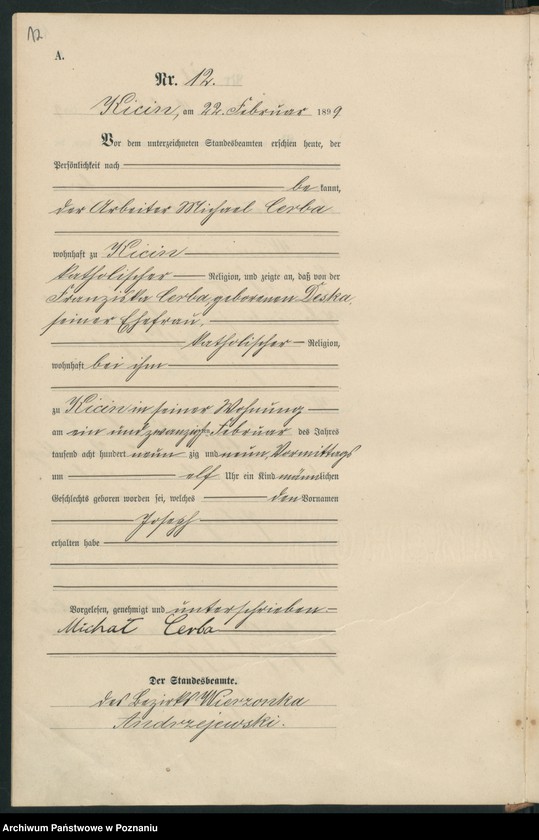 12
A.
Nr. 12.
Kicin, am 22. Februar 1899
Vor dem unterzeichneten Standesbeamten erschien heute, der
Persönlichkeit nach
be kannt,
der Arbeiter Michael Cerba
wohnhaft zu Kicin
katholischer Religion, und zeigte an, daß von der
Franziska Cerba, geborenen Deska,
seiner Ehefrau,
katholischer Religion,
wohnhaft bei ihm
zu Kicin in seiner Wohnung
am ein und zwanzigsten Februar des Jahres
tausend acht hundert neun zig und neun, Vormittags
um elf Uhr ein Kind männlichen
Geschlechts geboren worden sei, welches den Vornamen
Joseph
erhalten habe
Vorgelesen, genehmigt und unterschrieben
Michał Cerba
Der Standesbeamte.
des Bezirks Wierzonka
Andrzejewski.
Archiwum Państwowe w Poznaniu